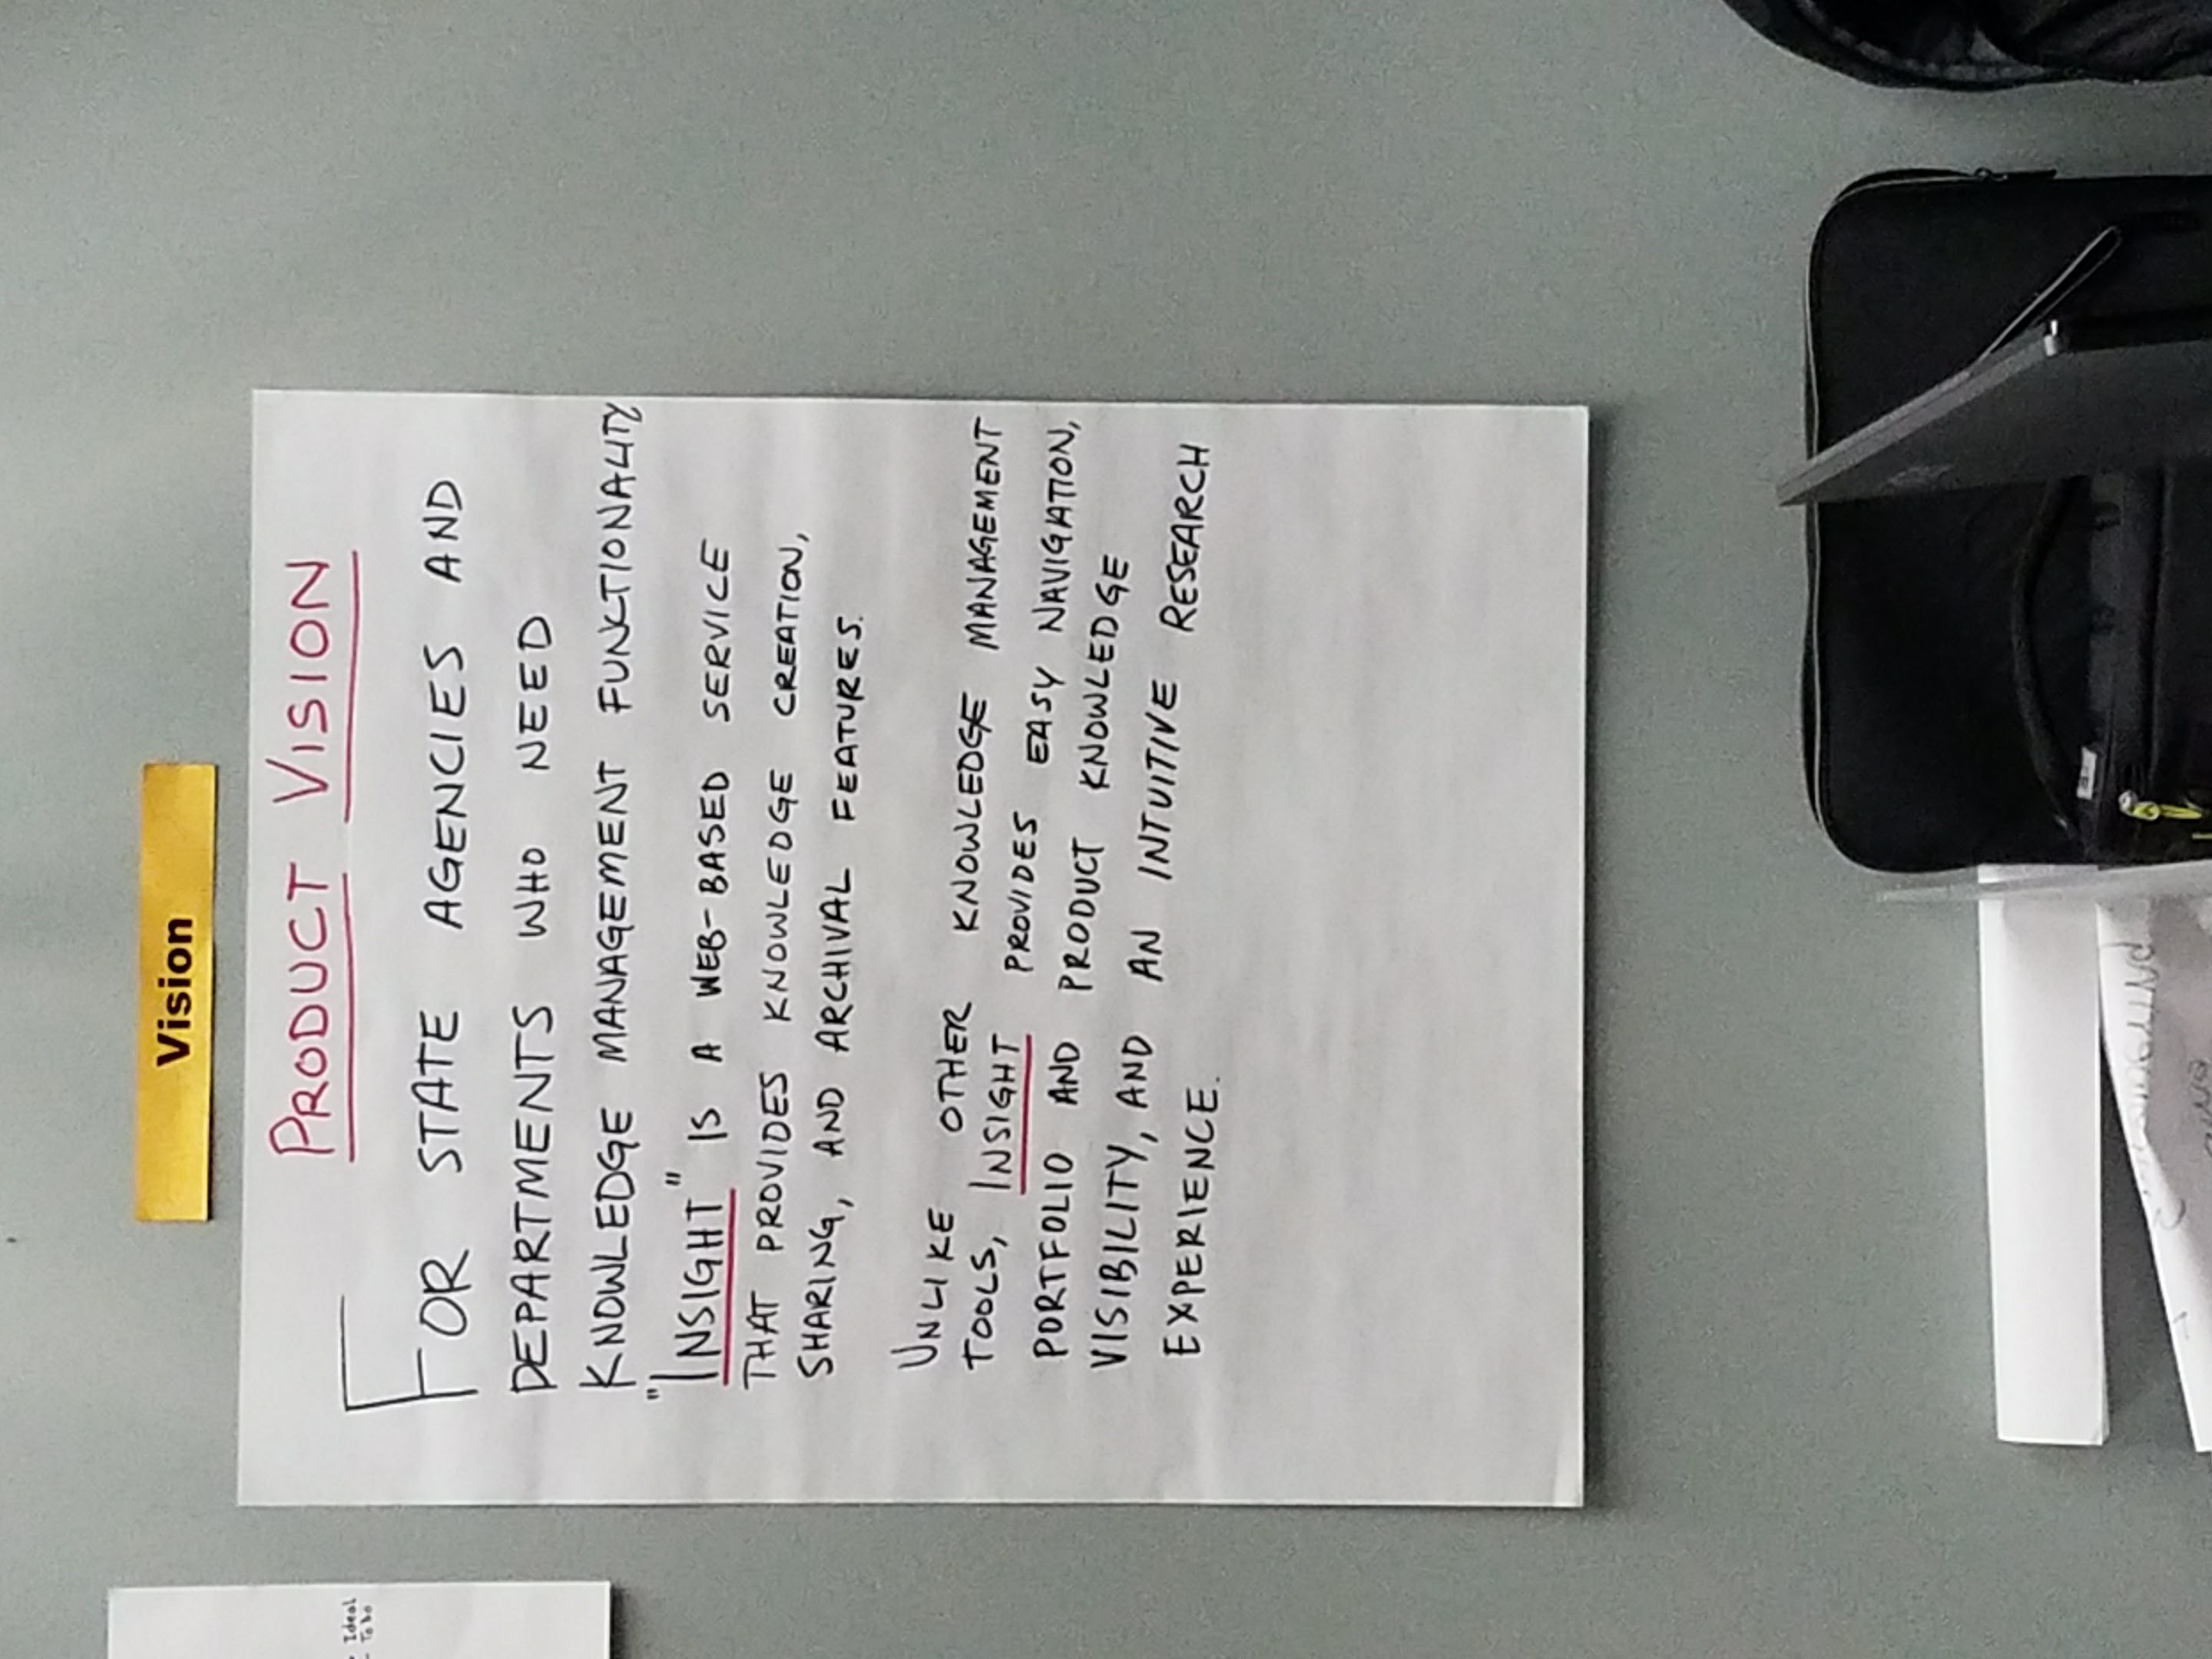 Vision
PRODUCT VISION
Ideal
To Do
FOR STATE AGENCIES AND
DEPARTMENTS WHO NEED
KNOWLEDGE MANAGEMENT FUNCTIONALITY
"INSIGHT" IS A WEB-BASED SERVICE
THAT PROVIDES KNOWLEDGE CREATION,
SHARING, AND ARCHIVAL FEATURES.
UNLIKE OTHER KNOWLEDGE MANAGEMENT
TOOLS, INSIGHT PROVIDES EASY NAVIGATION,
PORTFOLIO AND PRODUCT KNOWLEDGE
VISIBILITY, AND AN INTUITIVE RESEARCH
EXPERIENCE.